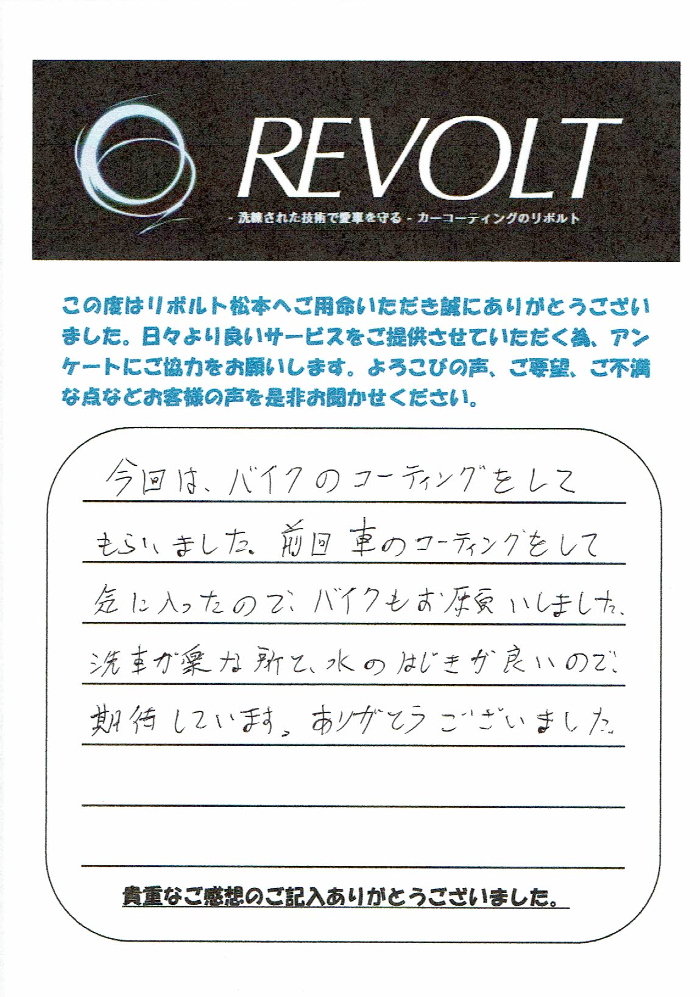 REVOLT
- 洗練された技術で愛車を守る - カーコーティングのリボルト
この度はリボルト松本へご用命いただき誠にありがとうござい
ました。日々より良いサービスをご提供させていただく為、アン
ケートにご協力をお願いします。よろこびの声、ご要望、ご不満
な点などお客様の声を是非お聞かせください。
今回は、バイクのコーティングをして
もらいました。前回車のコーティングをして
気に入ったので、バイクもお願いしました。
洗車が楽な所と、水のはじきが良いので、
期待しています。ありがとうございました。
貴重なご感想のご記入ありがとうございました。